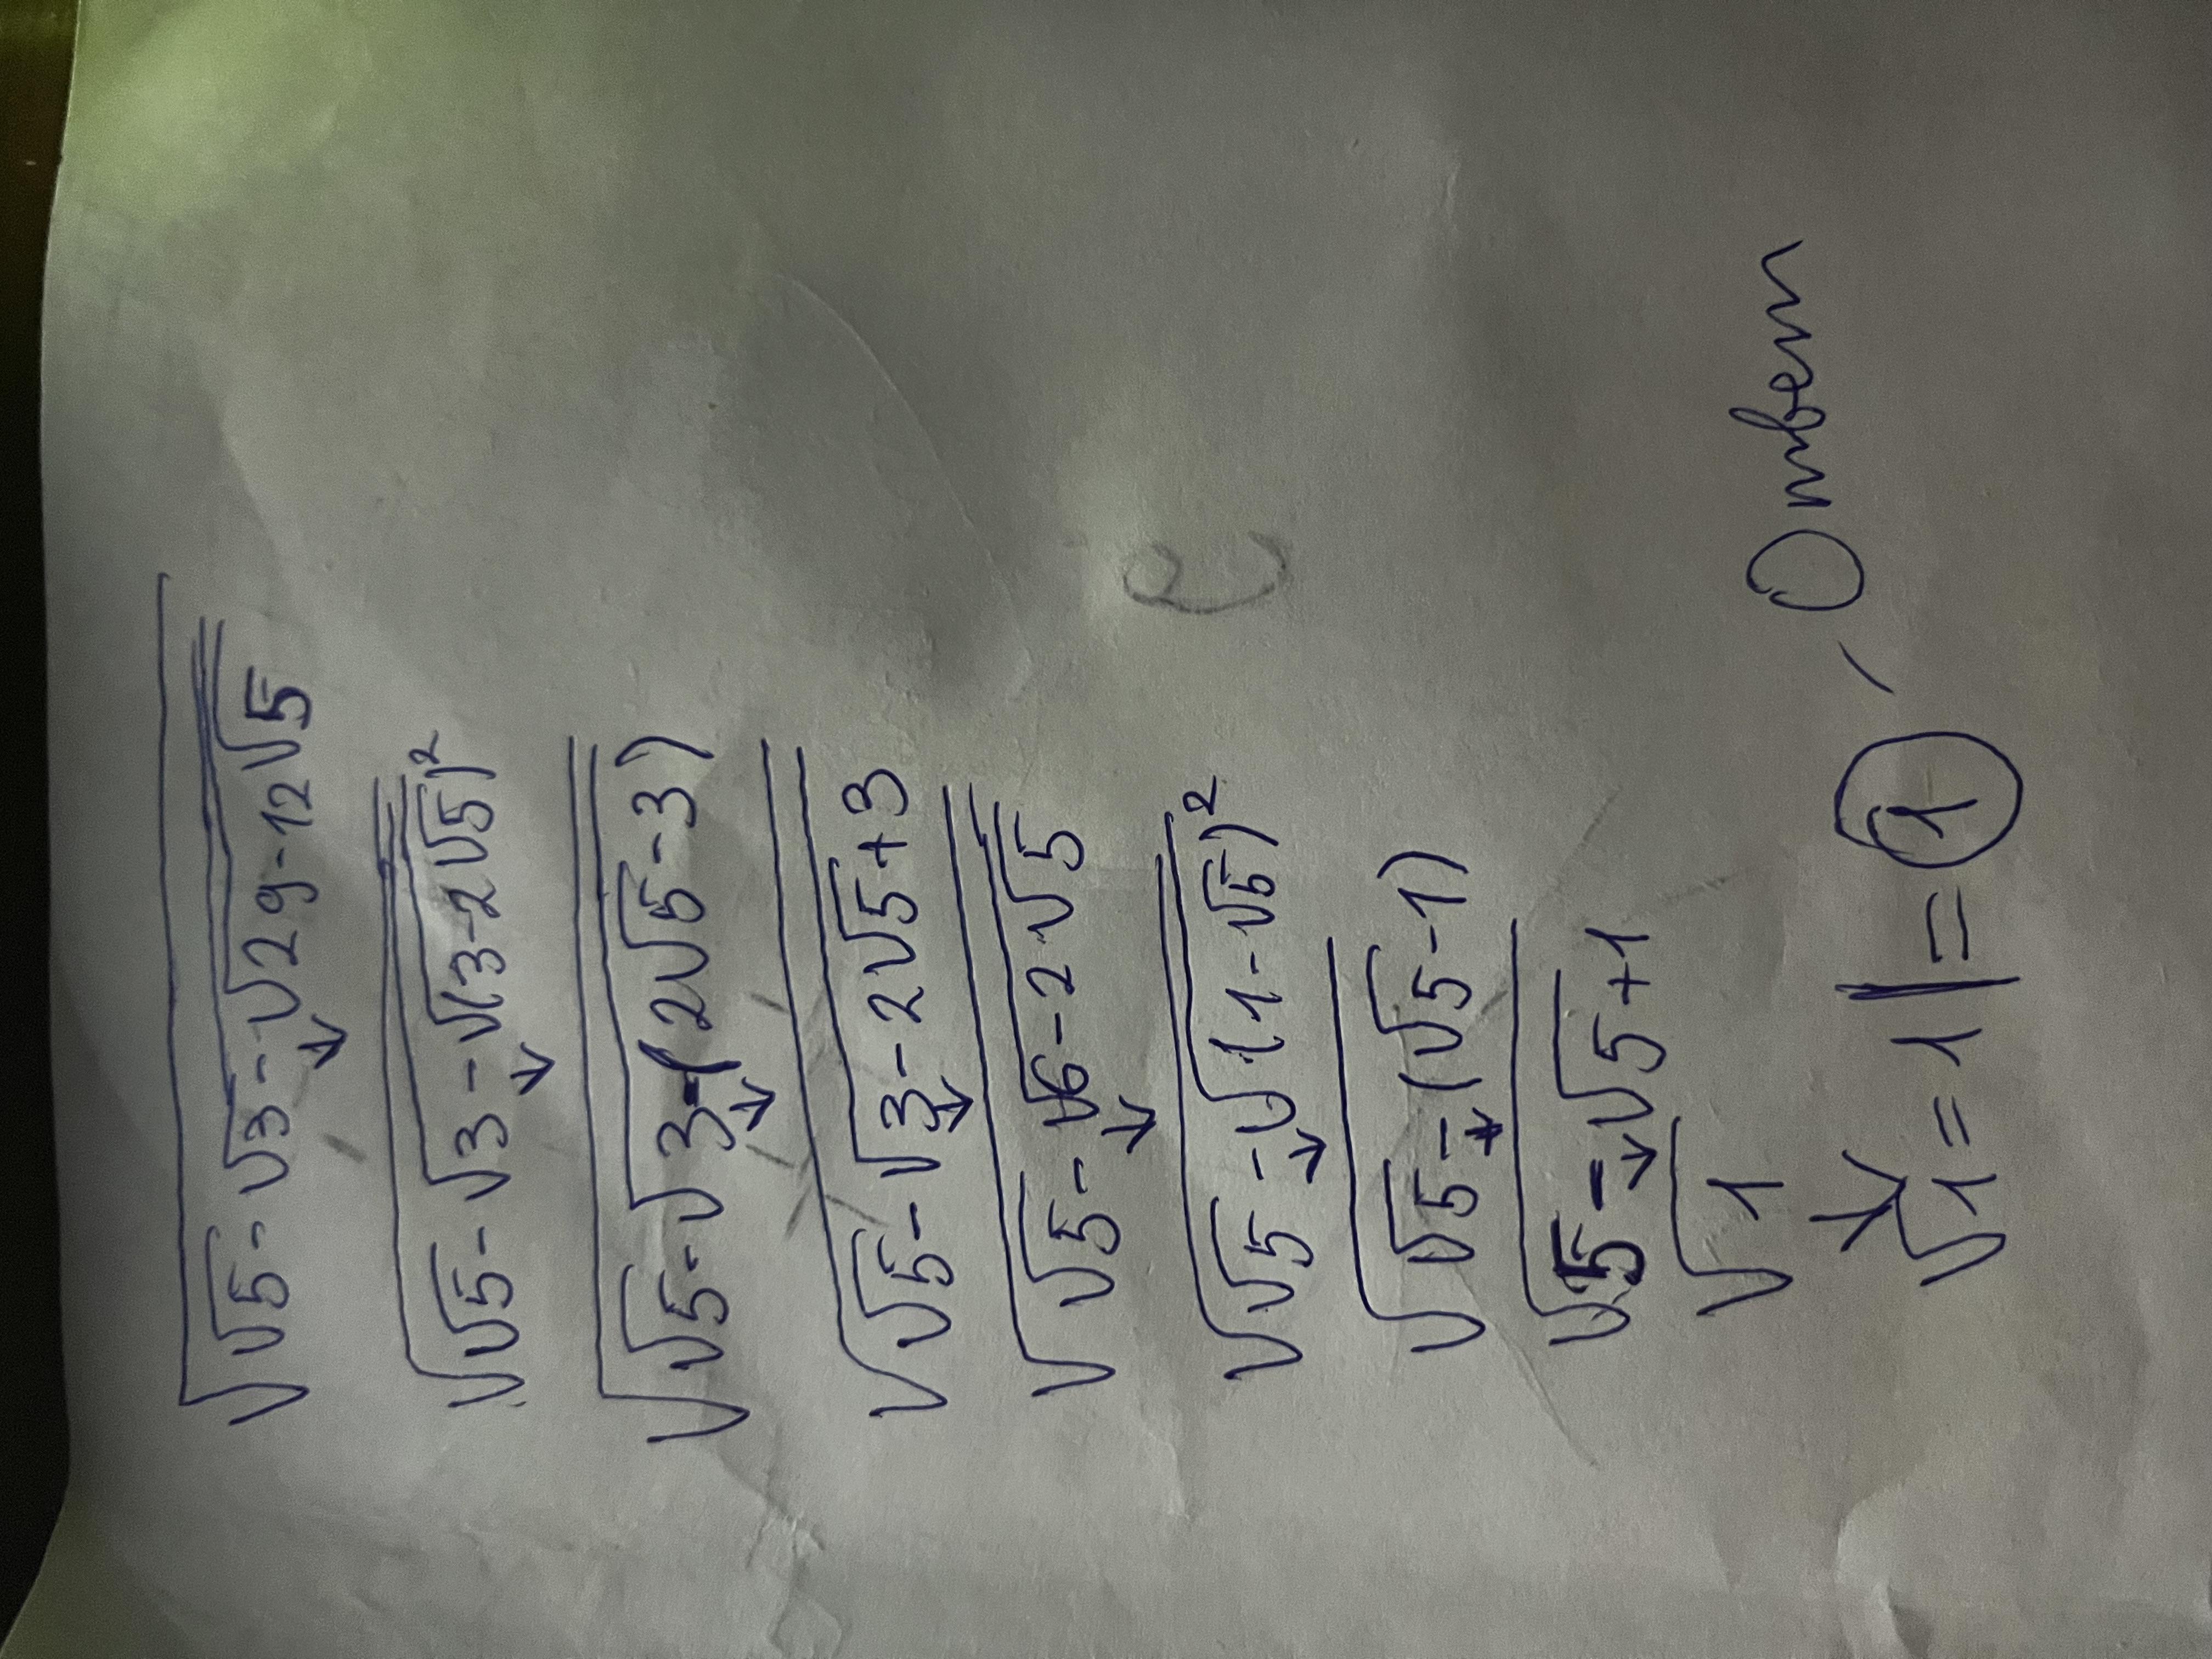 √(√5 - √(3 - √(29 - 12√5)))
√(√5 - √(3 - √((3 - 2√5)²)))
√(√5 - √(3 - (2√5 - 3)))
√(√5 - √(3 - 2√5 + 3))
√(√5 - √(6 - 2√5))
√(√5 - √((1 - √5)²))
√(√5 - (√5 - 1))
√(√5 - √5 + 1)
√1
√1 = 1 | = 1 - Ответ